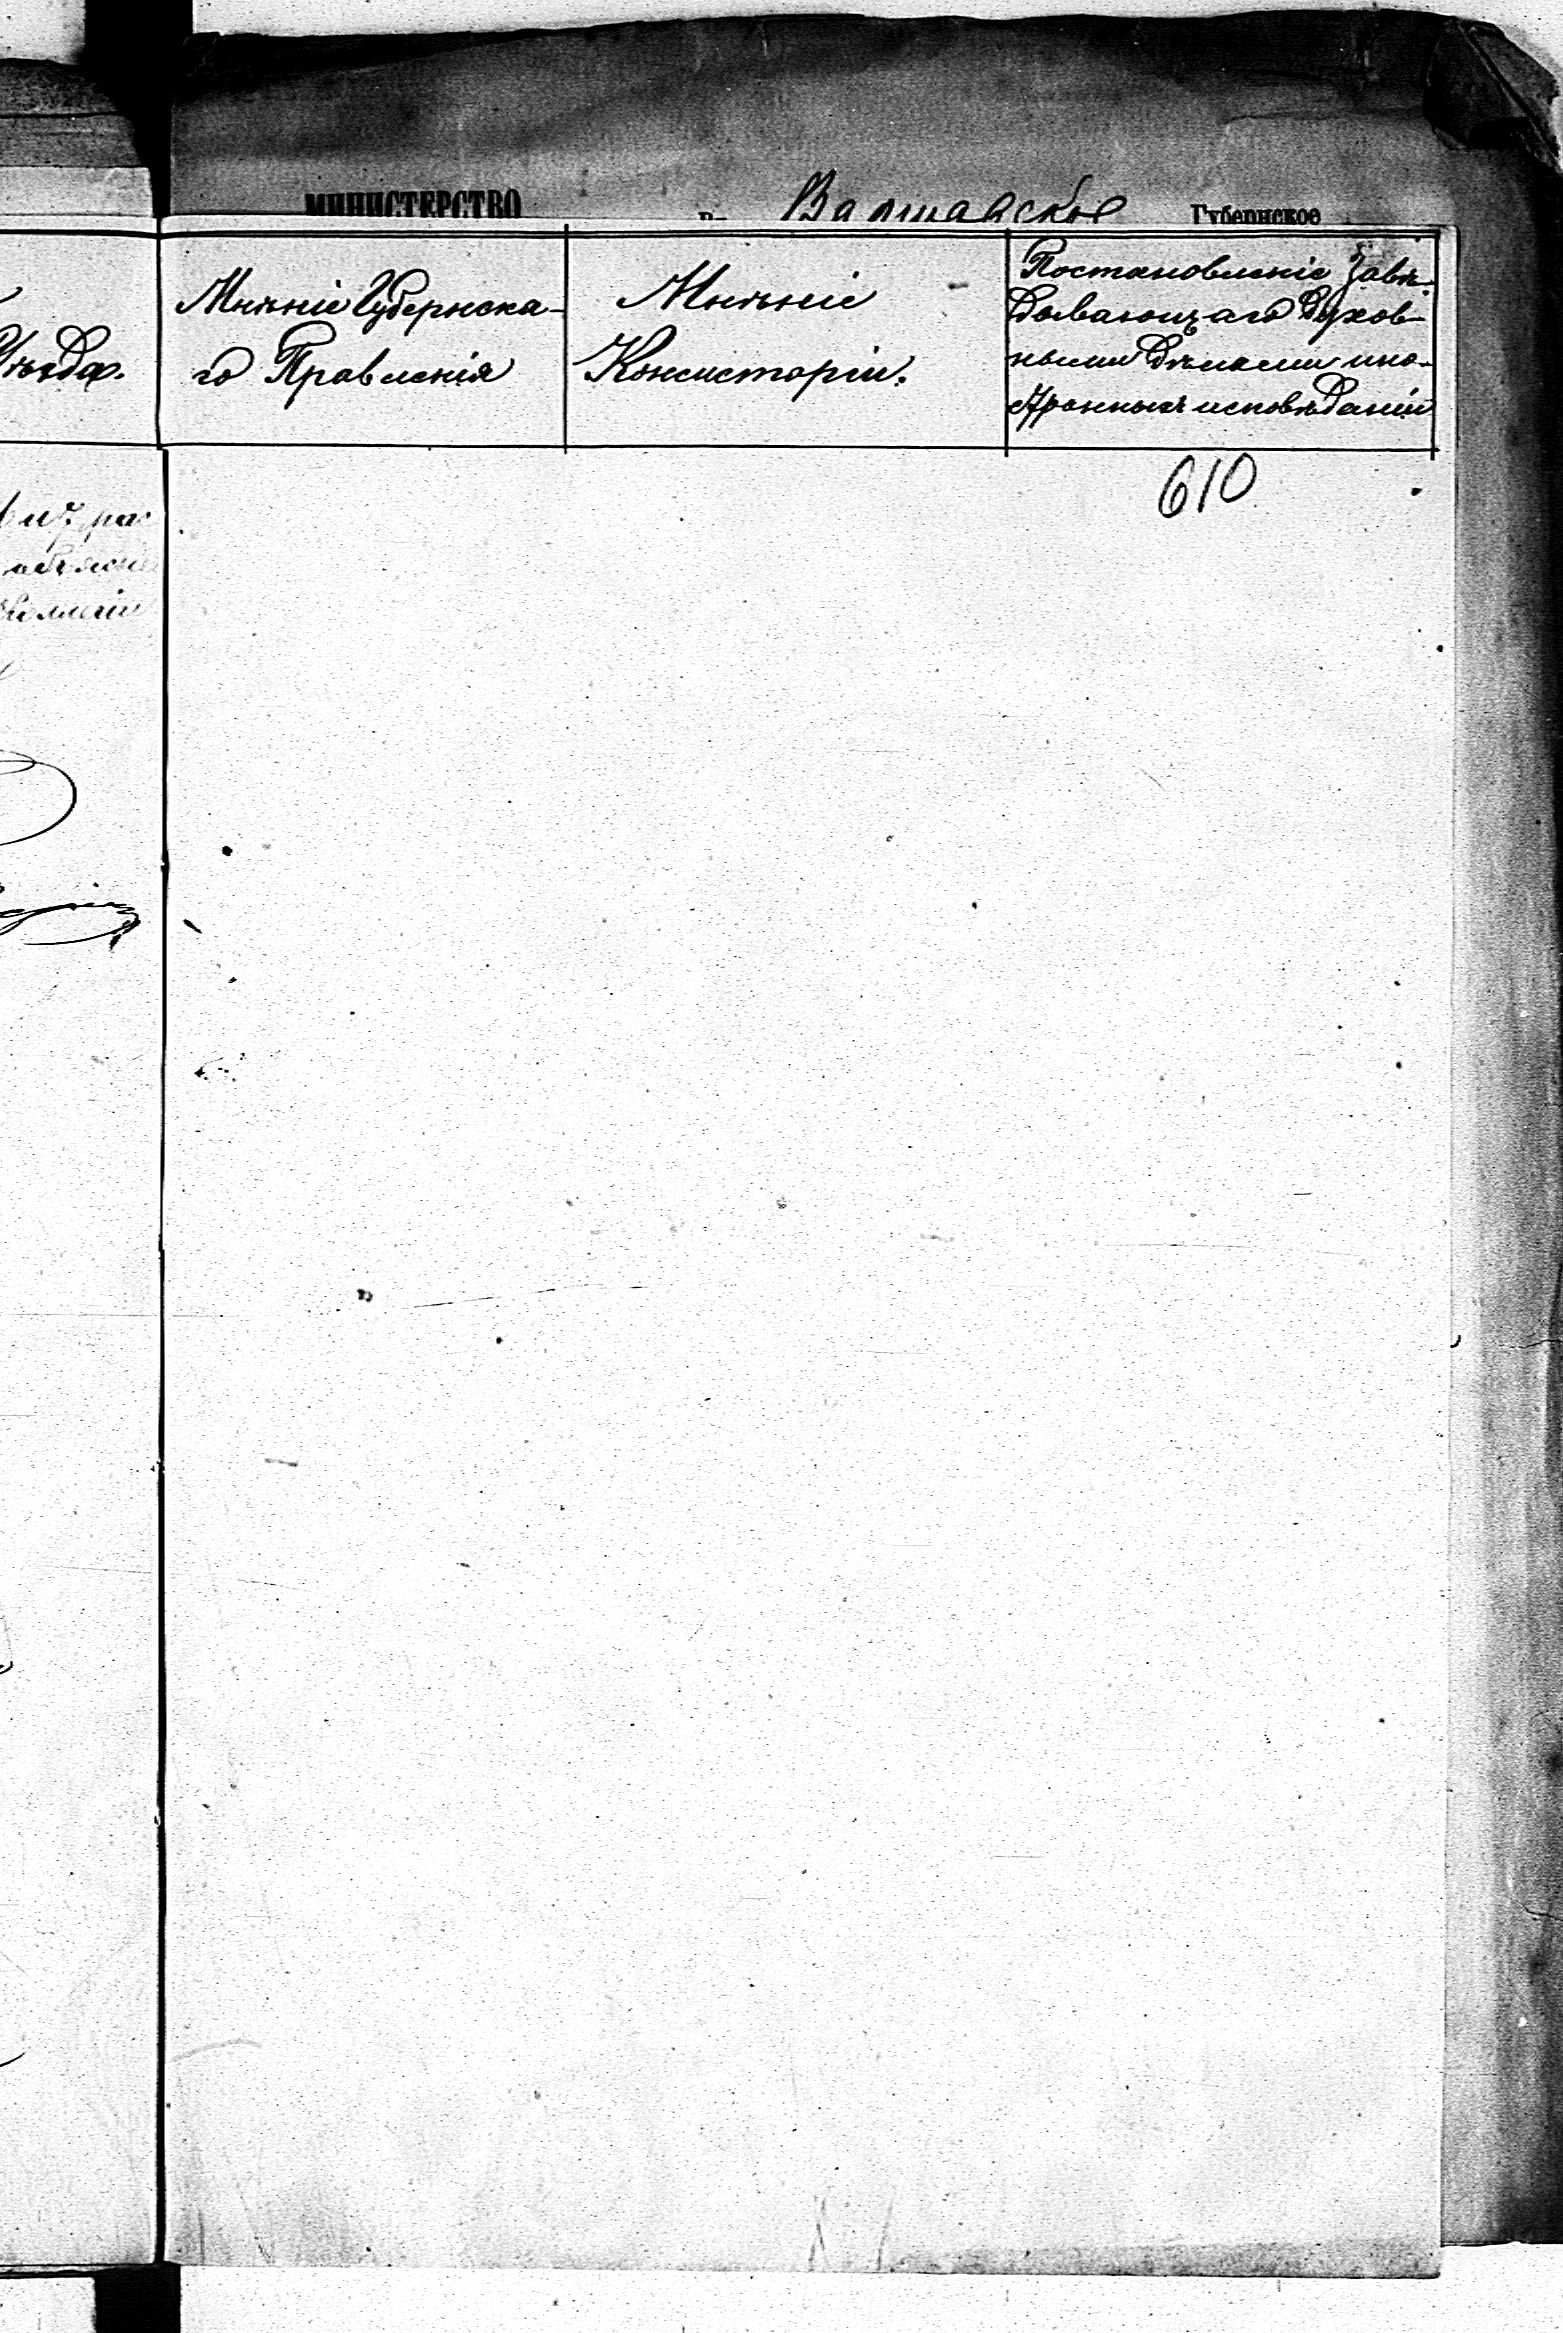 МИНИСТЕРСТВО
Варшавское Губернское
Уѣзда.
Мнѣніе Губернска-
го Правленія
Мнѣніе
Консисторіи.
Постановленіе Завѣ-
дывающаго Духов-
ными дѣлами ино-
странныхъ исповѣданій
610